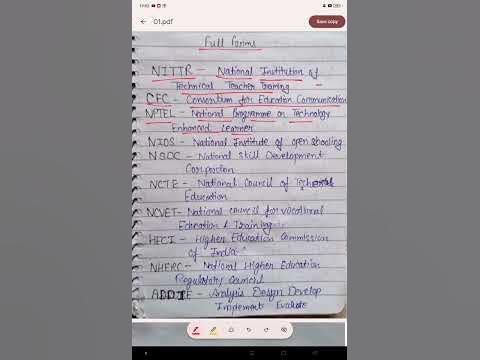 01.pdf
Save copy
Full Forms
NITTR - National Institution of
Technical Teacher Training
CEC - Consortium for Education Communication
NPTEL - National Programme on Technology
Enhanced Learner
NIOS - National Institute of open shooling
NSDC - National Skill Development
Corporation
NCTE - National Council of Teacher
Education
NCVET - National council for vocational
Education & Training
HECI - Higher Education Commission
of "India"
NHERC - National Higher Education
Regulatory Council
ADDIE - Analysis Design Develop
Implement Evaluate